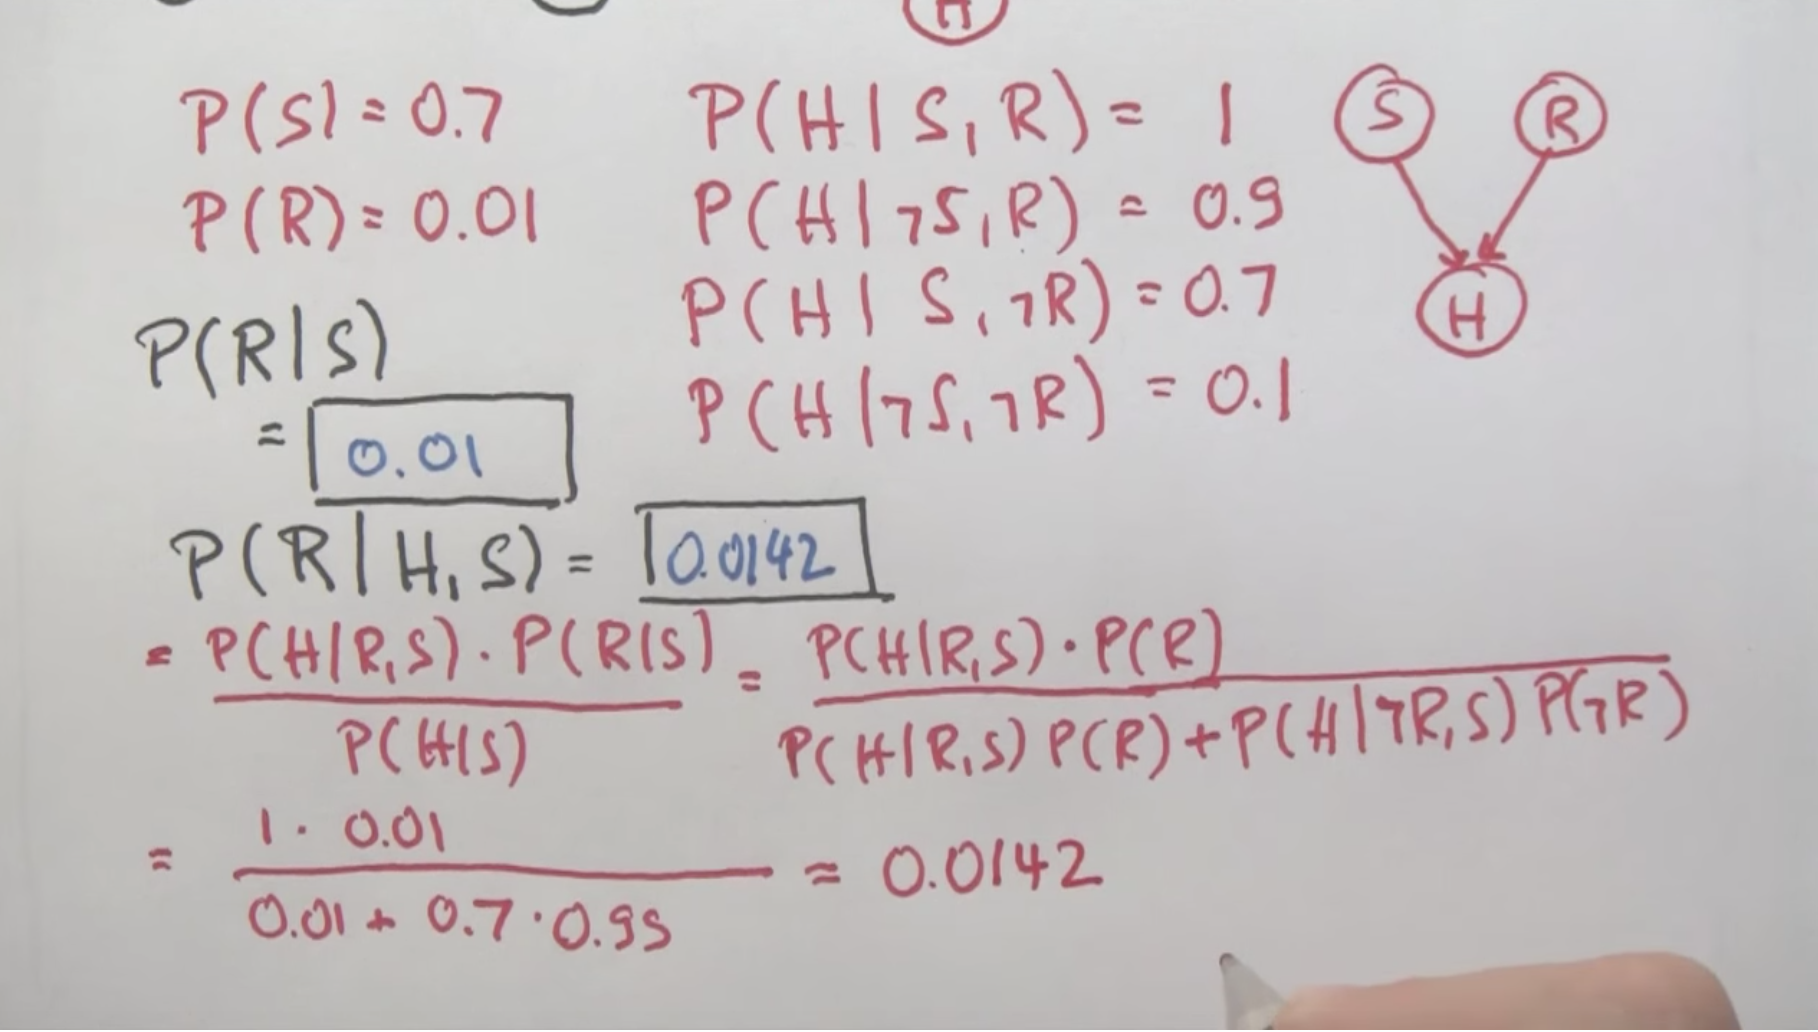 H
P(S) = 0.7
P(R) = 0.01
P(H | S, R) = 1
P(H | ¬S, R) = 0.9
P(H | S, ¬R) = 0.7
P(H | ¬S, ¬R) = 0.1
S R
H
P(R|S)
= 0.01
P(R | H, S) = 0.0142
= P(H|R,S) · P(R|S) = P(H|R,S) · P(R)
P(H|S) P(H|R,S) P(R) + P(H|¬R,S) P(¬R)
= 1 · 0.01 = 0.0142
0.01 + 0.7 · 0.99